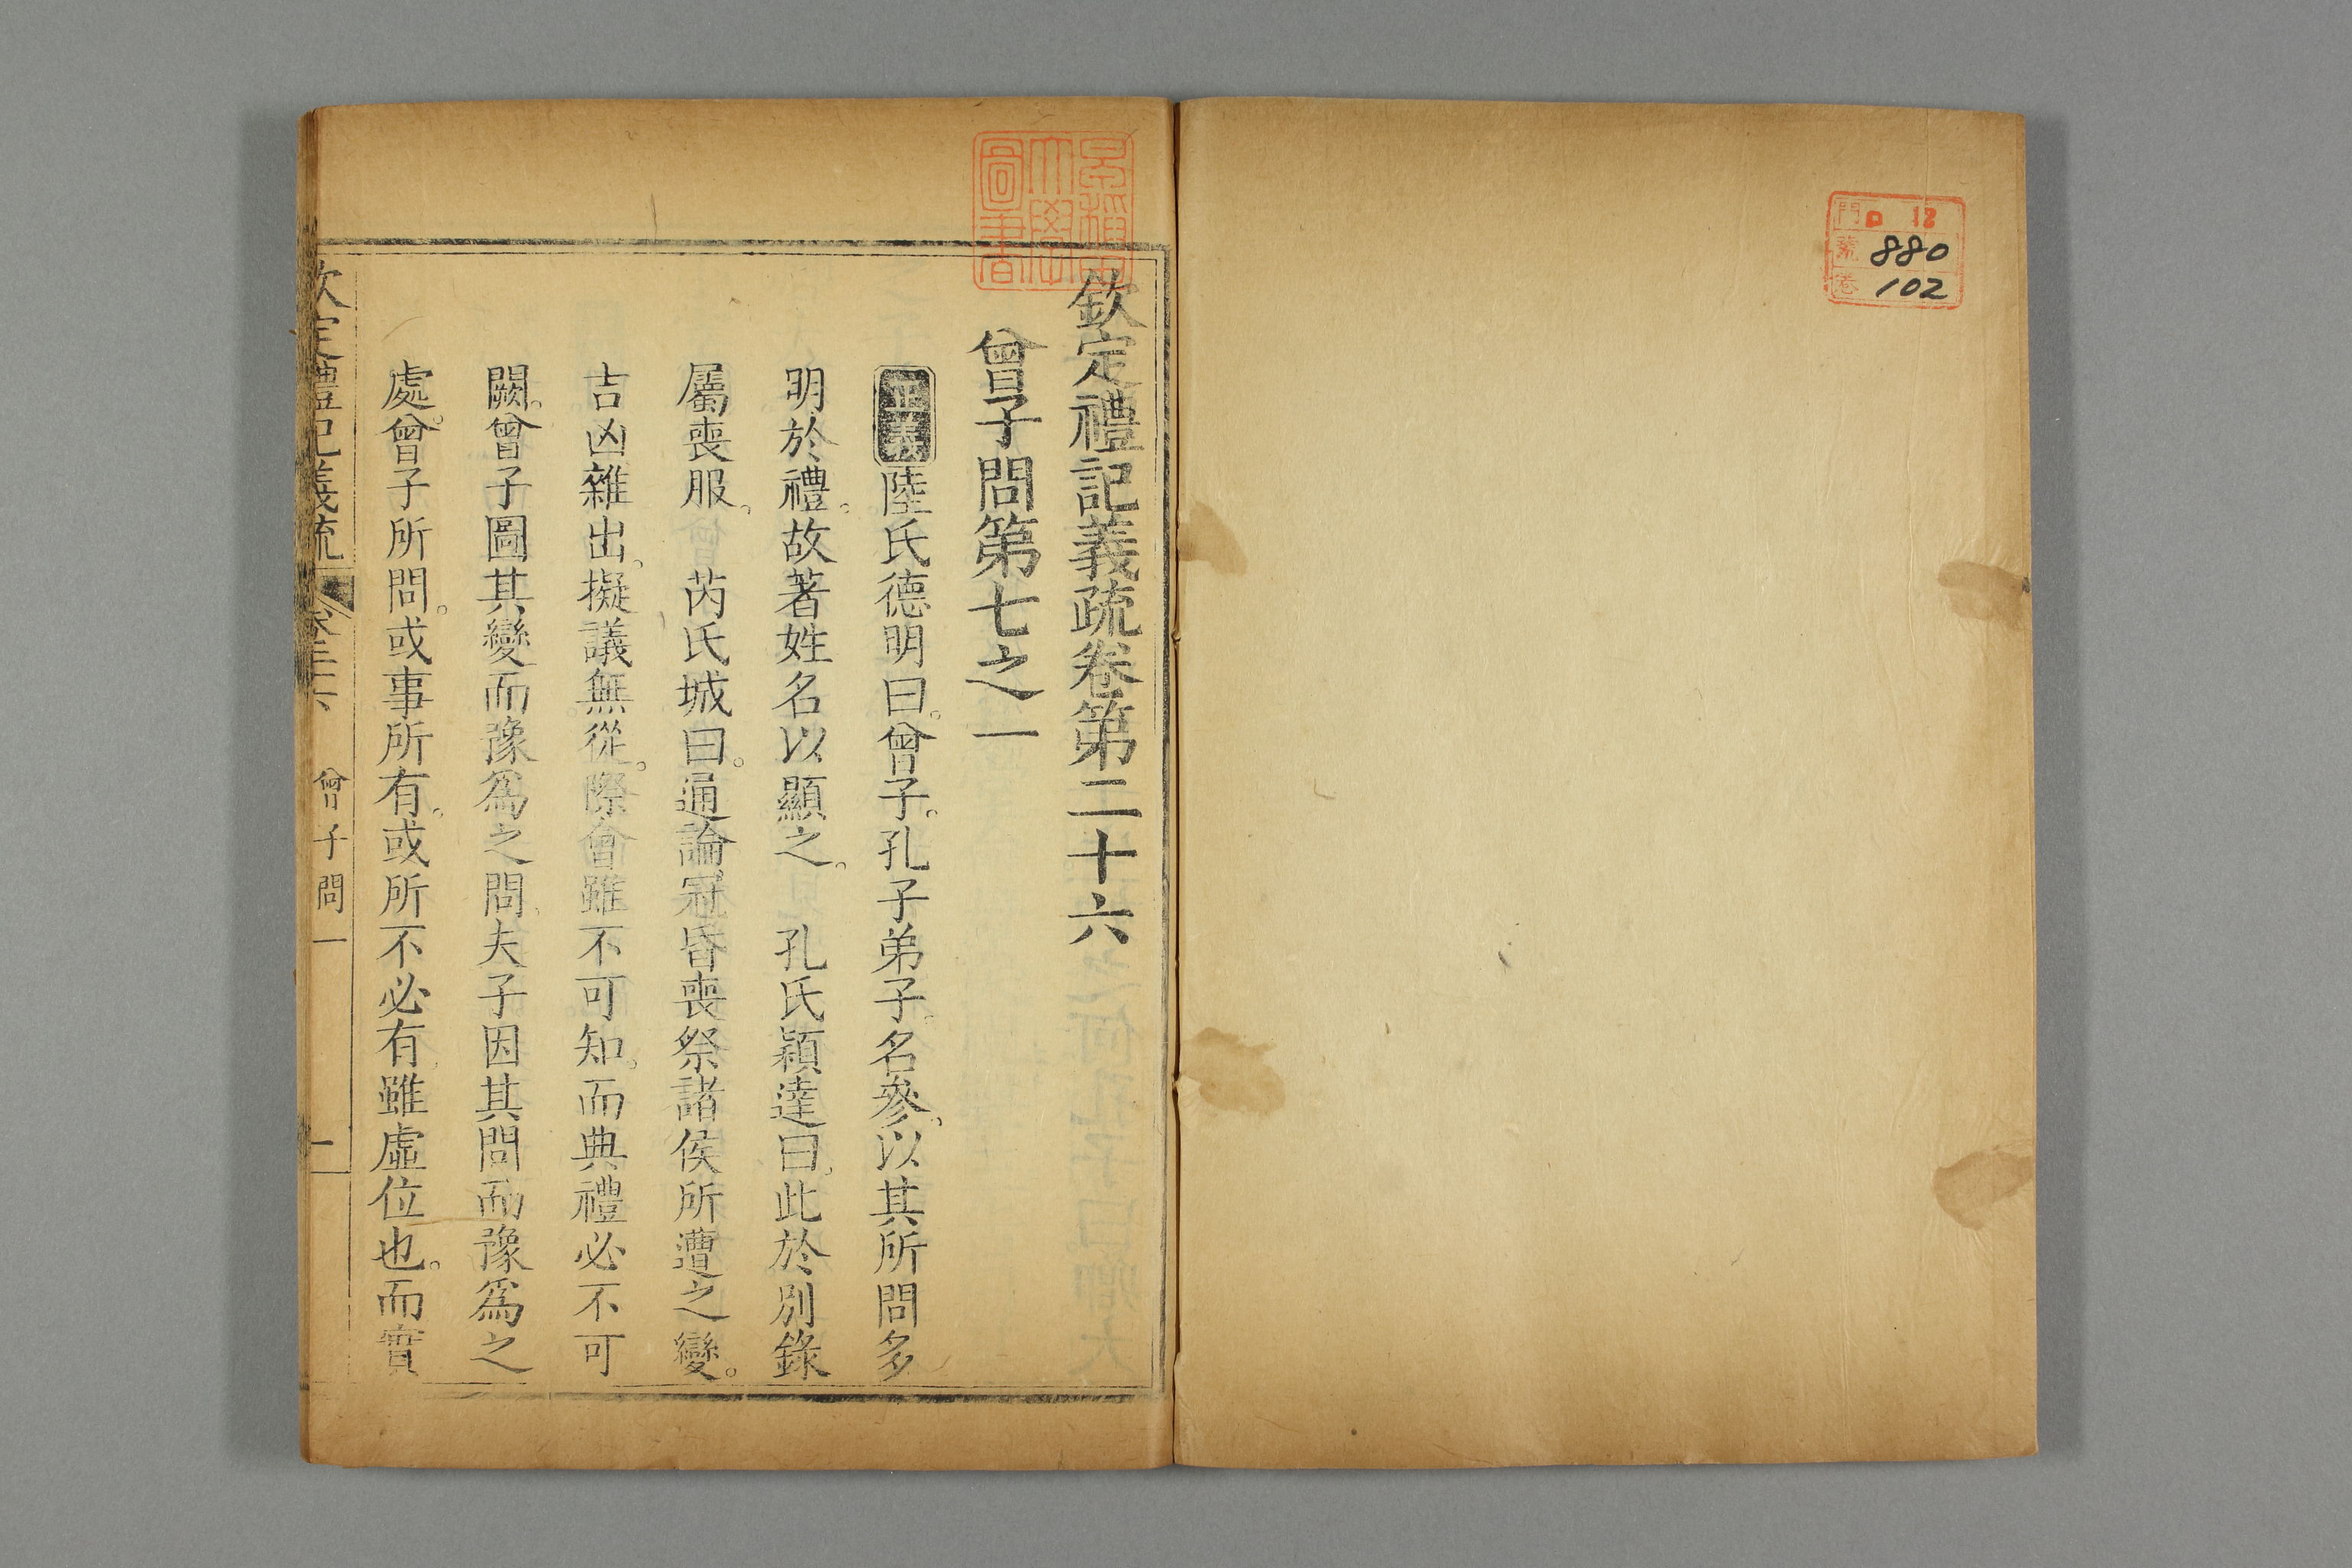 門 ロ 12
號 880
卷 102
早稲田大學圖書
欽定禮記義疏卷第二十六
曾子問第七之一
正義陸氏德明曰。曾子。孔子弟子。名參。以其所問多
明於禮。故著姓名以顯之。 孔氏穎達曰。此於別錄
屬喪服。 芮氏城曰。通論冠昏喪祭諸侯所遭之變。
吉凶雜出。擬議無從。際會雖不可知。而典禮必不可
闕。曾子圖其變而豫爲之問。夫子因其問而豫爲之
處。曾子所問。或事所有。或所不必有。雖虛位也。而實
欽定禮記義疏 卷二十六 曾子問一 一